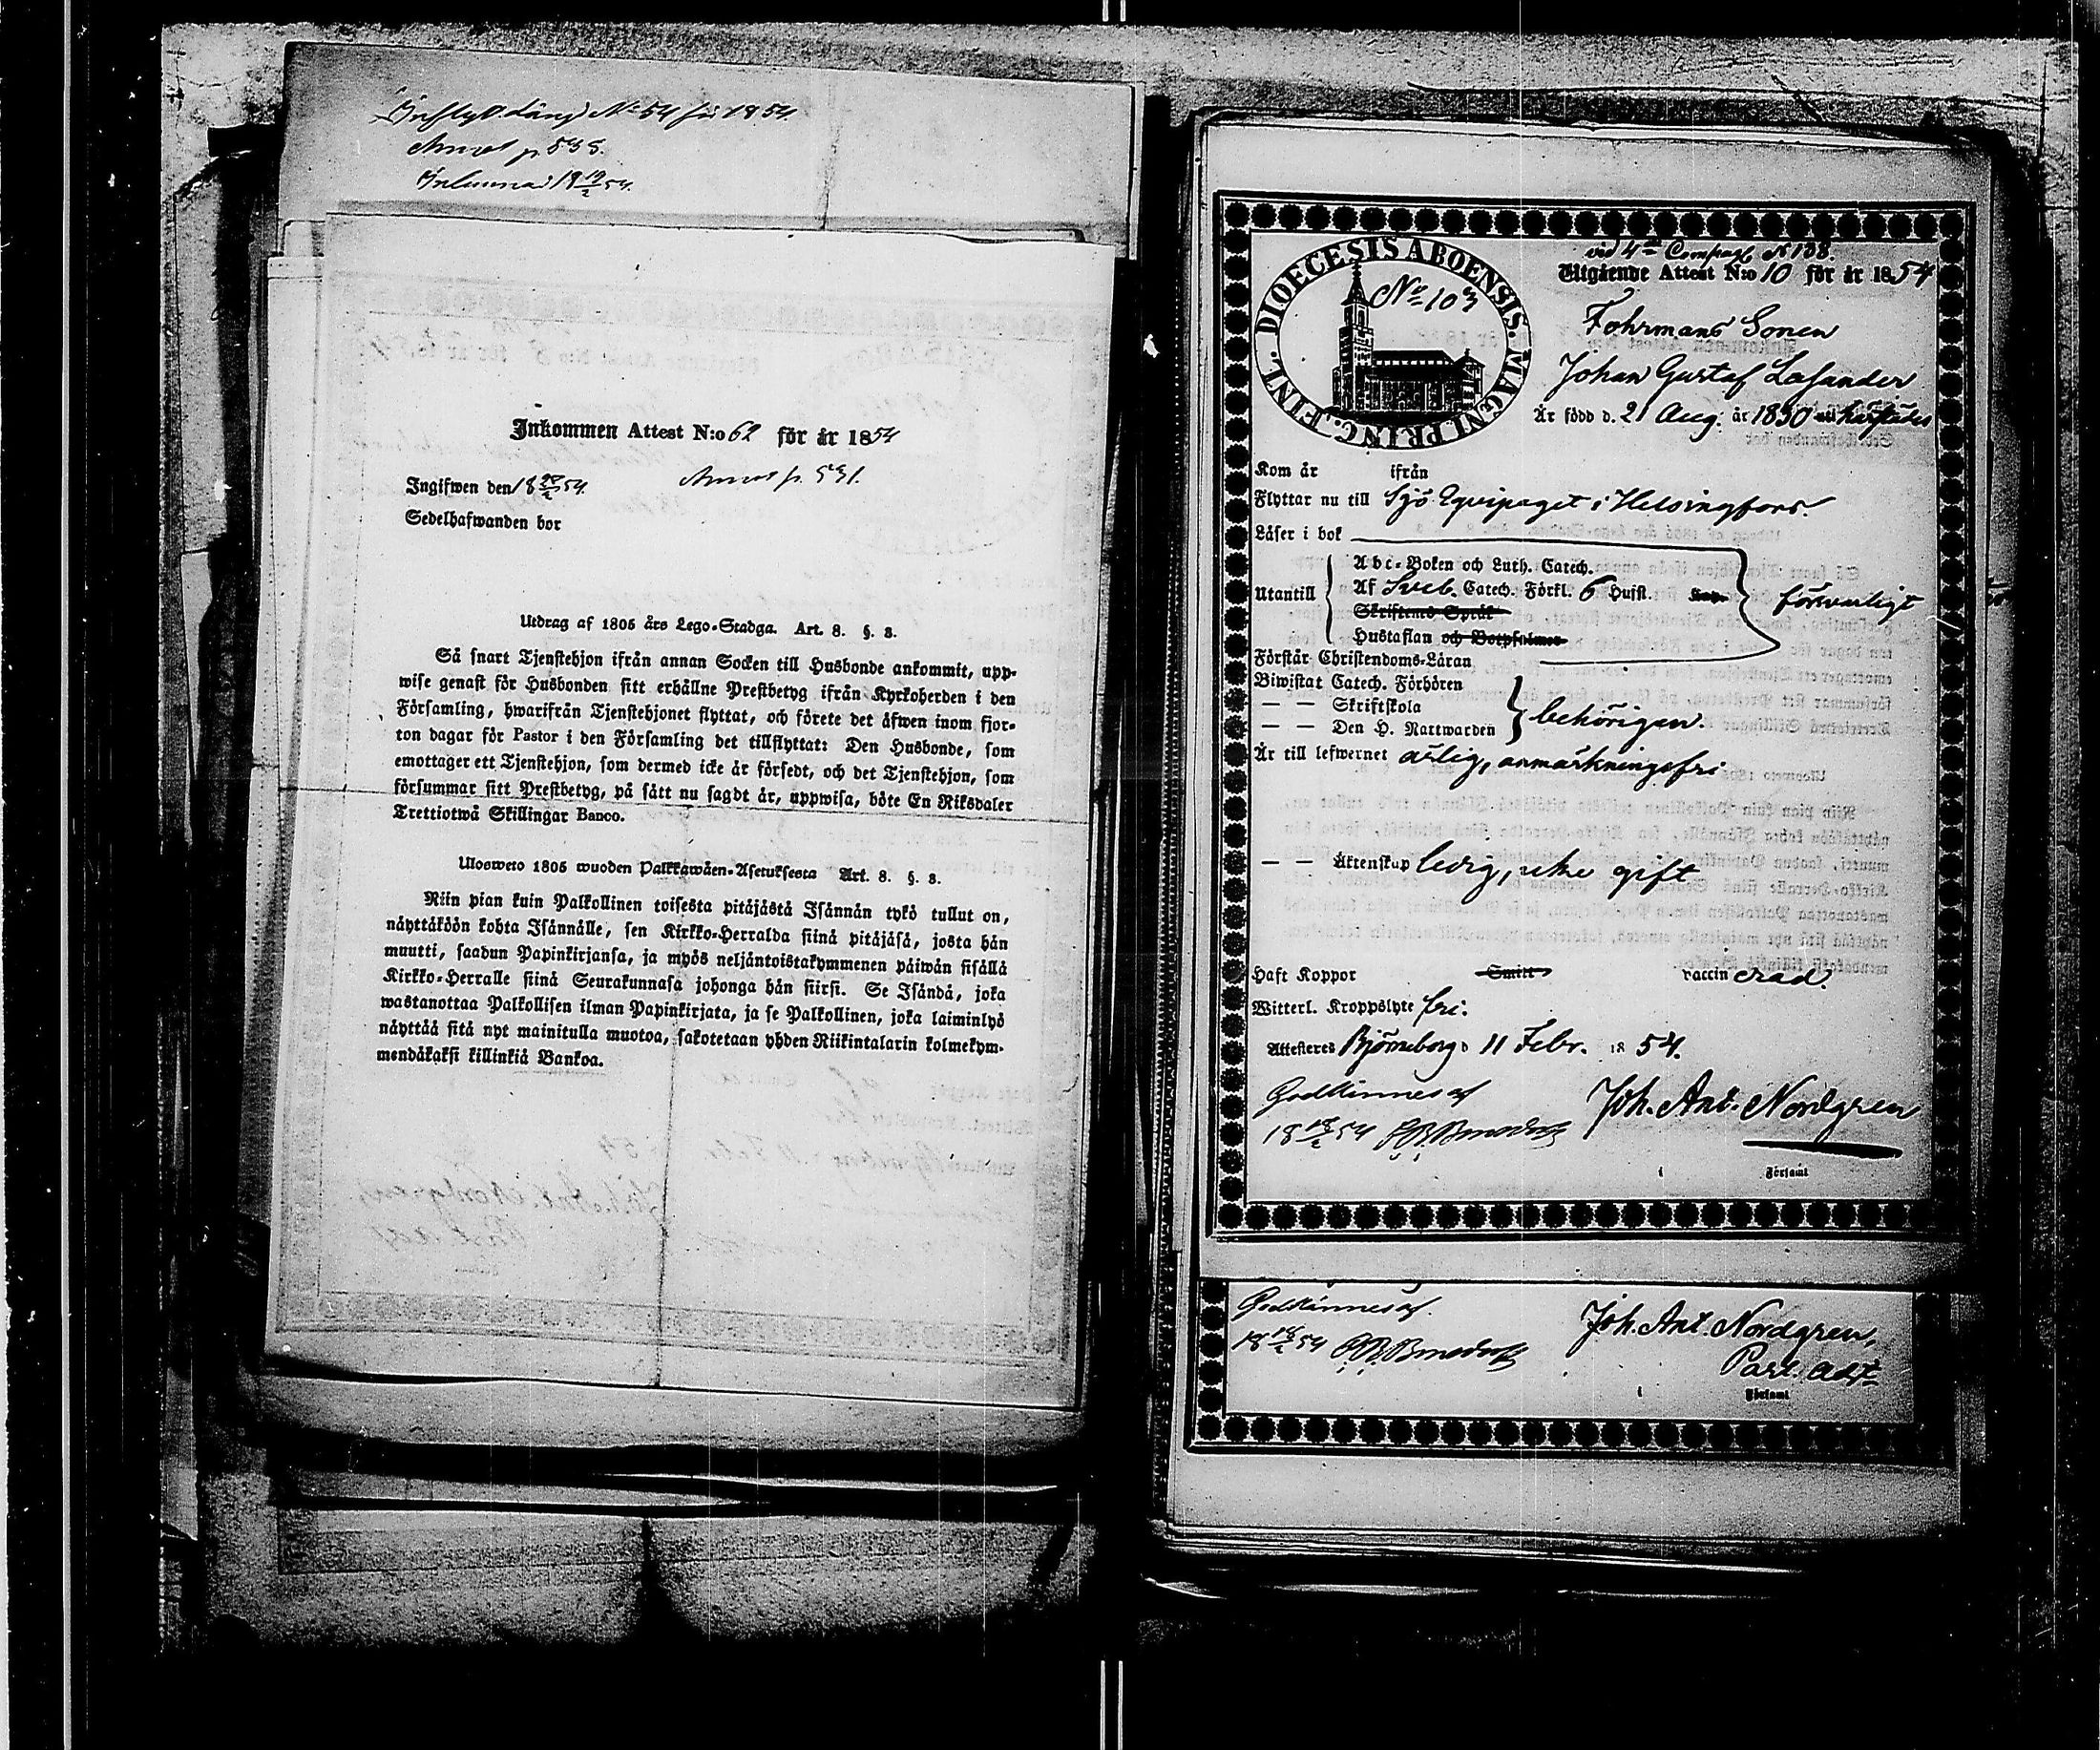 Inflyttn. Längd No 54 för 1854.
Annot p. 535.
Inlemnad 18 19/2 54.
Inkommen Attest N:o 62 för år 1854
Ingifwen den 18 20/2 54. Annot p. 531.
Sedelhafwanden bor
Utdrag af 1805 års Lego-Stadga. Art. 8. §. 8.
Så snart Tjenstehjon ifrån annan Socken till Husbonde ankommit, upp-
wise genast för Husbonden sitt erhållne Prestbetyg ifrån Kyrkoherden i den
Församling, hwarifrån Tjenstehjonet flyttat, och förete det äfwen inom fjor-
ton dagar för Pastor i den Församling det tillflyttat: Den Husbonde, som
emottager ett Tjenstehjon, som dermed icke är försedt, och det Tjenstehjon, som
försummar sitt Prestbetyg, på sätt nu sagdt är, uppwisa, böte En Riksdaler
Trettiotwå Skillingar Banco.
Ulosweto 1805 wuoden Palkkawäen-Asetuksesta Art. 8. §. 8.
Niin pian kuin Palkollinen toisesta pitäjästä Isännän tykö tullut on,
näyttäköön kohta Isännälle, sen Kirkko-Herralda siinä pitäjäsä, josta hän
muutti, saadun Papinkirjansa, ja myös neljäntoistakymmenen päiwän sisällä
Kirkko-Herralle siinä Seurakunnasa johonga hän siirsi. Se Isändä, joka
wastanottaa Palkollisen ilman Papinkirjata, ja se Palkollinen, joka laiminlyö
näyttää sitä nyt mainitulla muotoa, sakotetaan yhden Riikintalarin kolmekym-
mendäkaksi killinkiä Bankoa.
DIOECESIS ABOENSIS. MAGNI PRINC. FINL.
No 103
vid 4de Compagt N 138.
Utgående Attest N:o 10 för år 1854
Fohrmans Sonen
Johan Gustaf Lasander
Är född d. 21 Aug. år 1830
Kom år ifrån
Flyttar nu till Sjö Equipaget i Helsingfors.
Läser i bok
Abc-Boken och Luth. Catech.
Utantill Af Sveb. Catech. Förkl. 6 Hufst. försvarligt
Skriftenes Språk
Hustaflan och Botpsalmer
Förstår Christendoms-Läran
Biwistat Catech. Förhören
— — Skriftskola behörigen.
— — Den H. Nattwarden
Är till lefwernet ärlig, anmärkningsfri
— — Äktenskap ledig, icke gift
Haft Koppor Smitt vaccinerad.
Witterl. Kroppslyte fri.
Attesteres Björneborg d 11 Febr. 1854.
Godkännes af Joh. Ant. Nordgren
18 18/2 54
i Församl
Godkännes af. Joh. Ant. Nordgren,
18 18/2 54 Past. adj.
i Församl